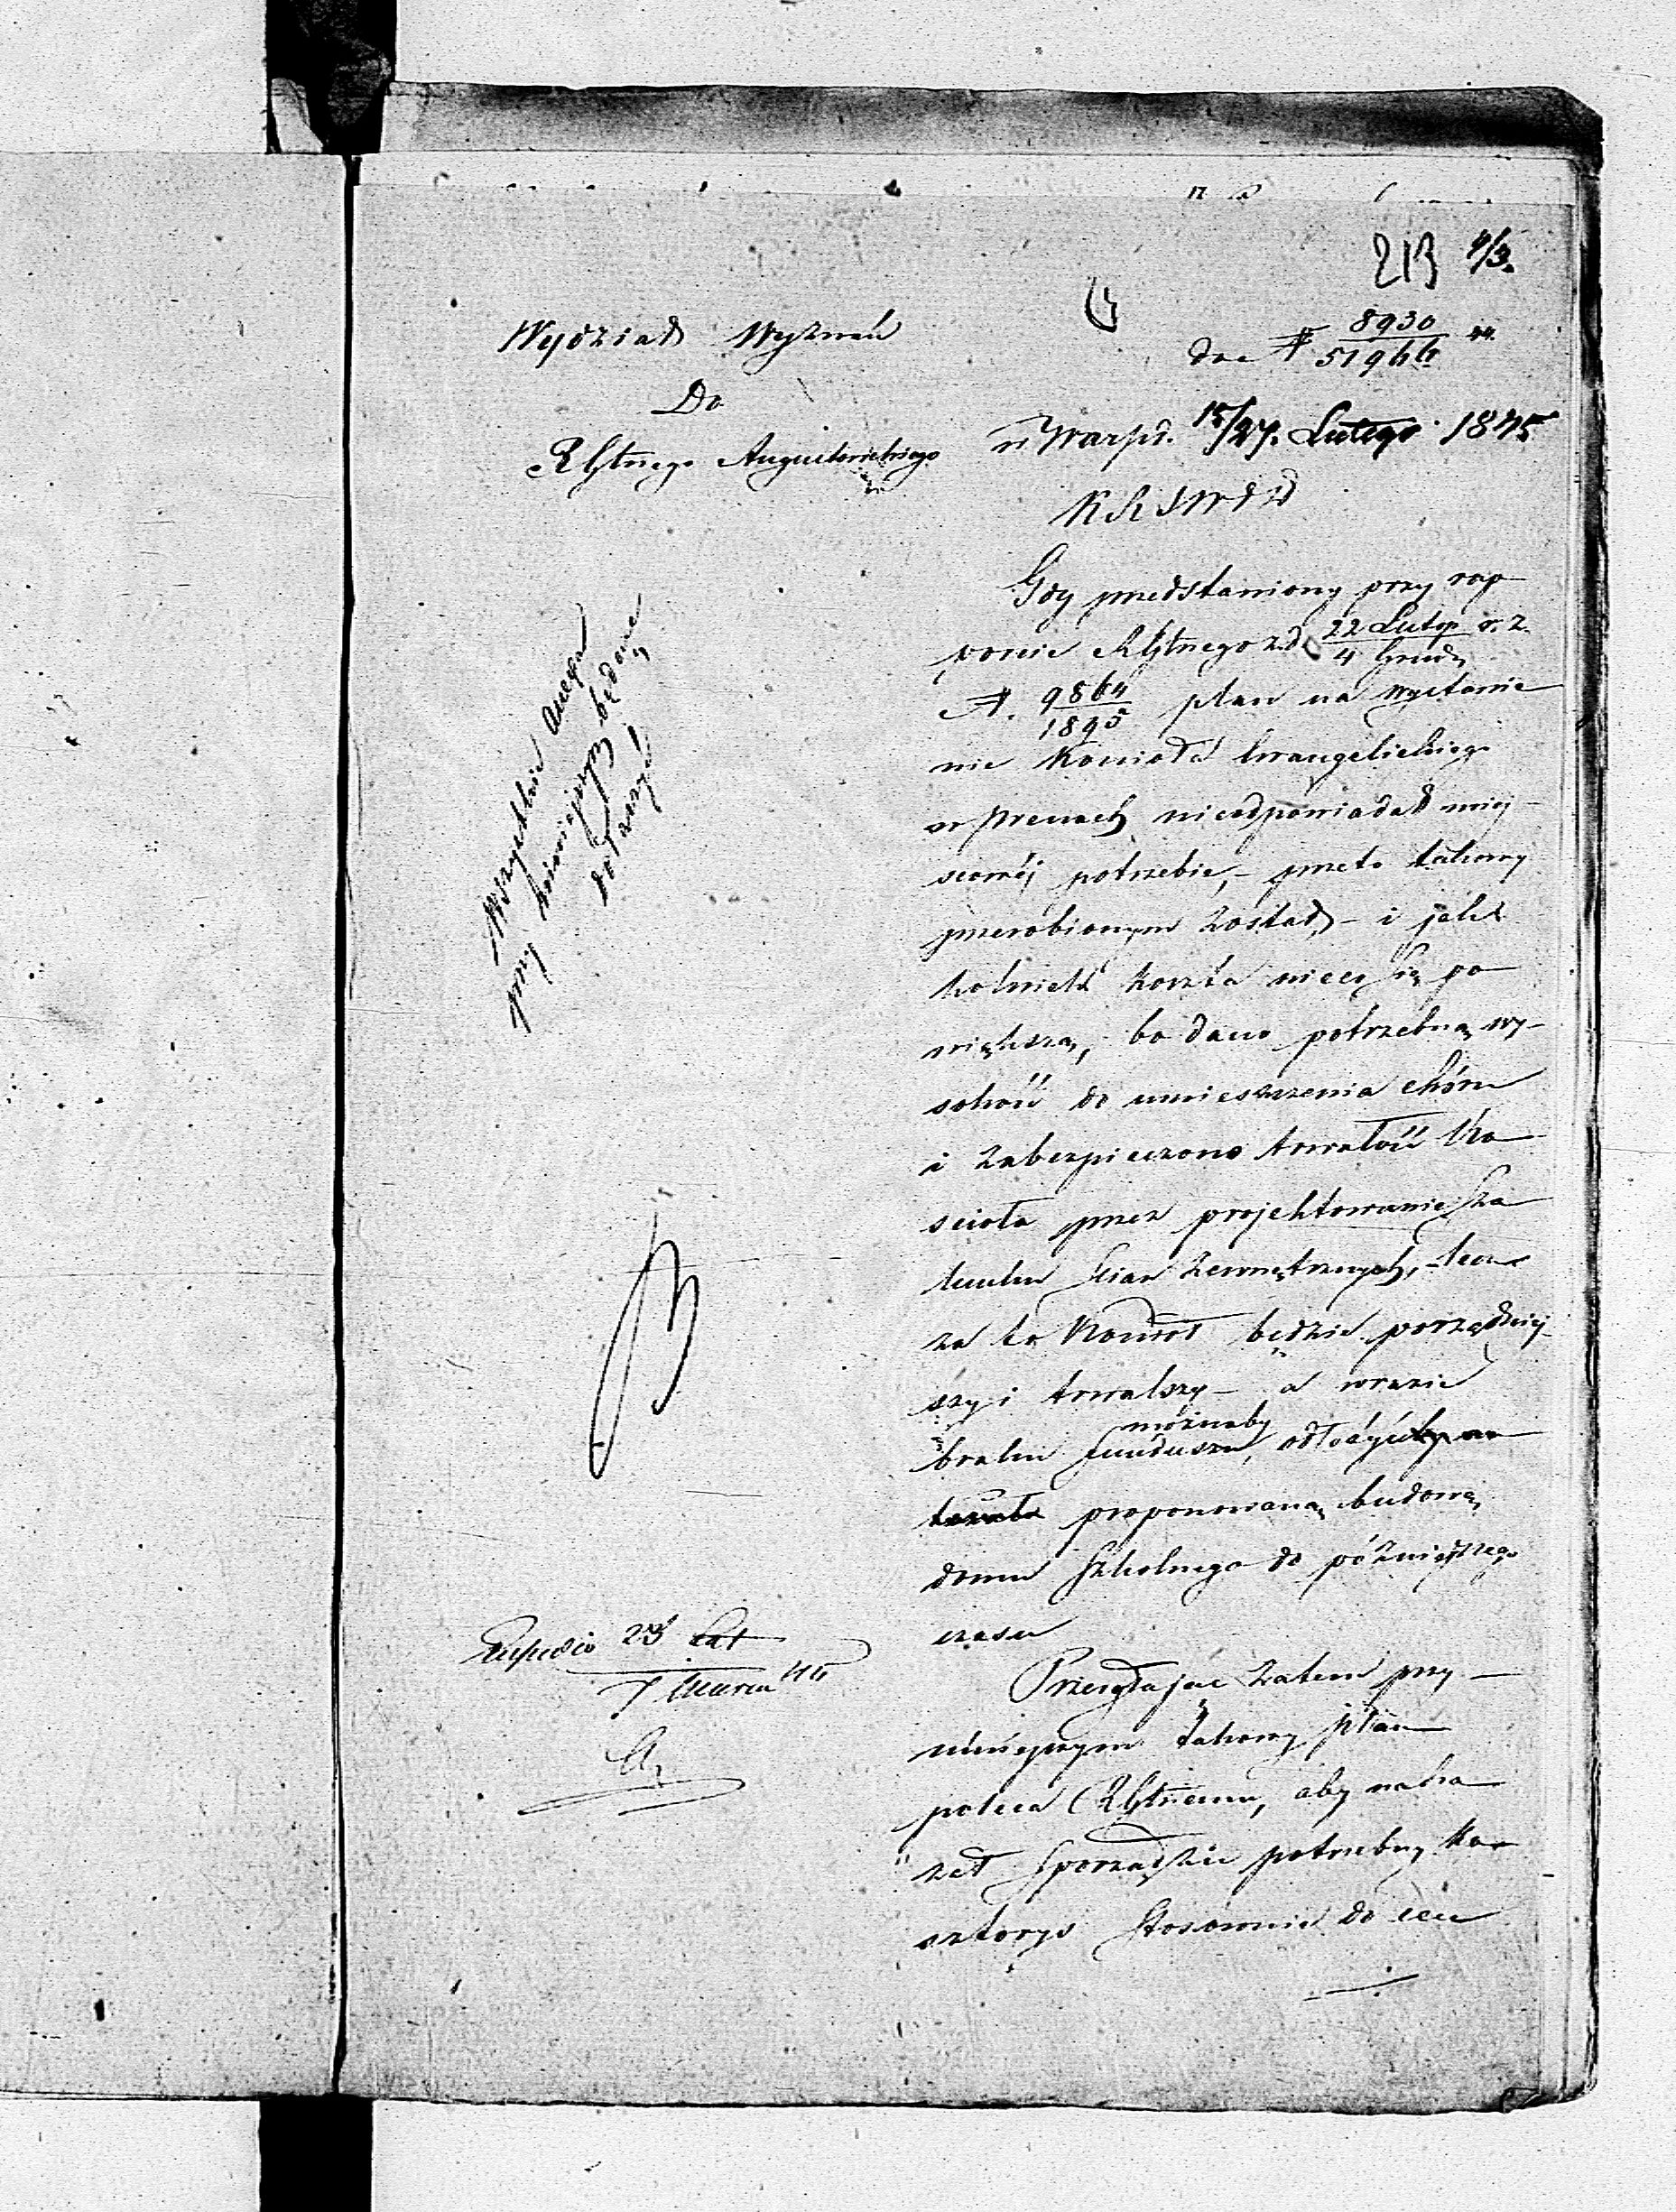 213 4/3.
Wydział Wyznań
Do
RGłnego Augustowskiego
do № 8930/51966 44.
w Warsz. 15/27. Lutego 1845
K R S W i D
Gdy przedstawiony przy rap
porcie RGłnego z d. 22 Listop/4 Grud. r. z.
№. 9864/1895 plan na wystawie
nie Kościoła Ewangelickiego
w Prenach nieodpowiadał miej
scowéj potrzebie, – przeto takowy
przerobionym został, – i jak
kolwiek koszta nieco się po
większą, bo dano potrzebną wy-
sokość do umieszczenia chóru
i zabezpieczono trwałość Ko
ścioła przez projektowanie
ścian zewnętrznych, – lecz
za to Kościół będzie porządniej-
szy i trwalszy – a w razie
braku funduszu, możnaby odłożyć
proponowaną budowę
domu Szkolnego do późniejszego
czasu
Przesyłając zatem przy
niniejszym takowy plan
poleca RGłnemu, aby naka
zał sporządzić potrzebny ko
sztorys stosownie do cen
Wszystkie anexa
przy niniejszym będące
dołączyć
Expedio 23 Lut/7 Marca 45